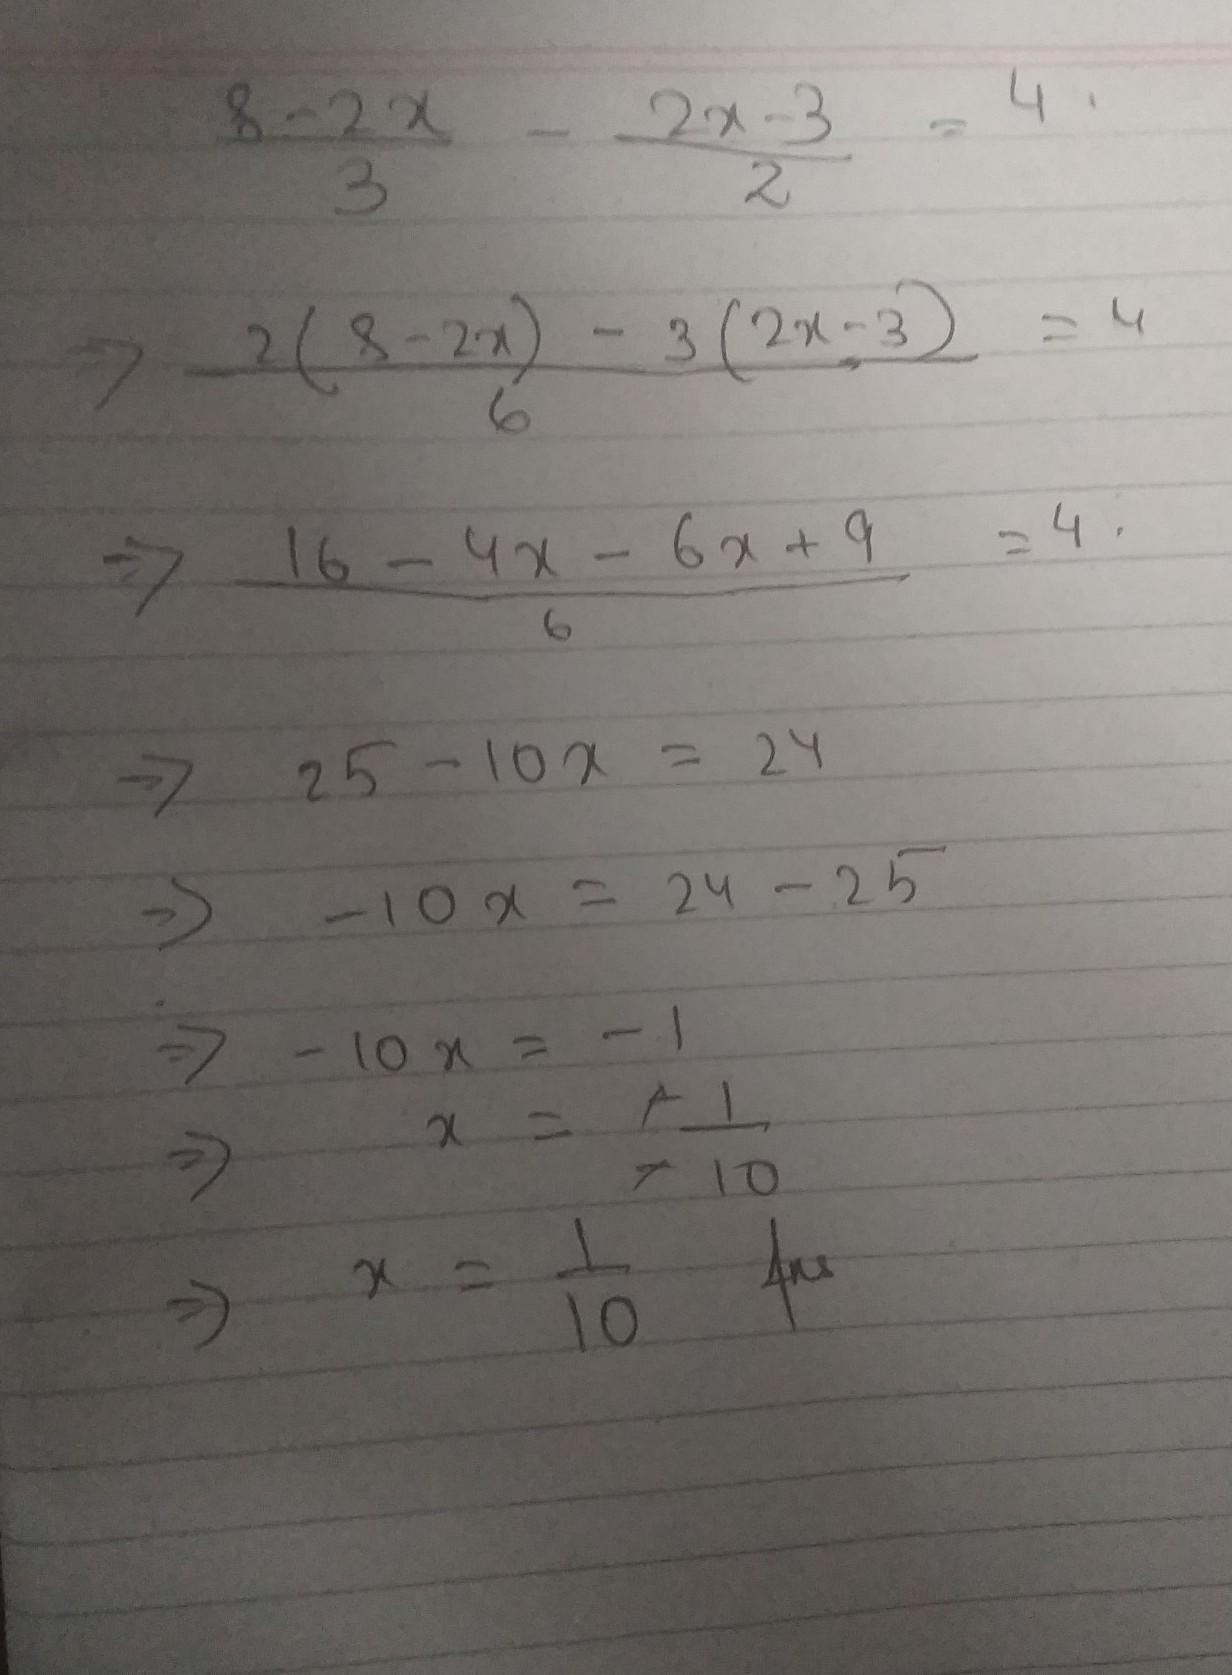 8-2x/3 - 2x-3/2 = 4.
⇒ 2(8-2x) - 3(2x-3)/6 = 4
⇒ 16 - 4x - 6x + 9/6 = 4.
⇒ 25 - 10x = 24
⇒ -10x = 24 - 25
⇒ -10x = -1
⇒ x = -1/-10
⇒ x = 1/10 Ans